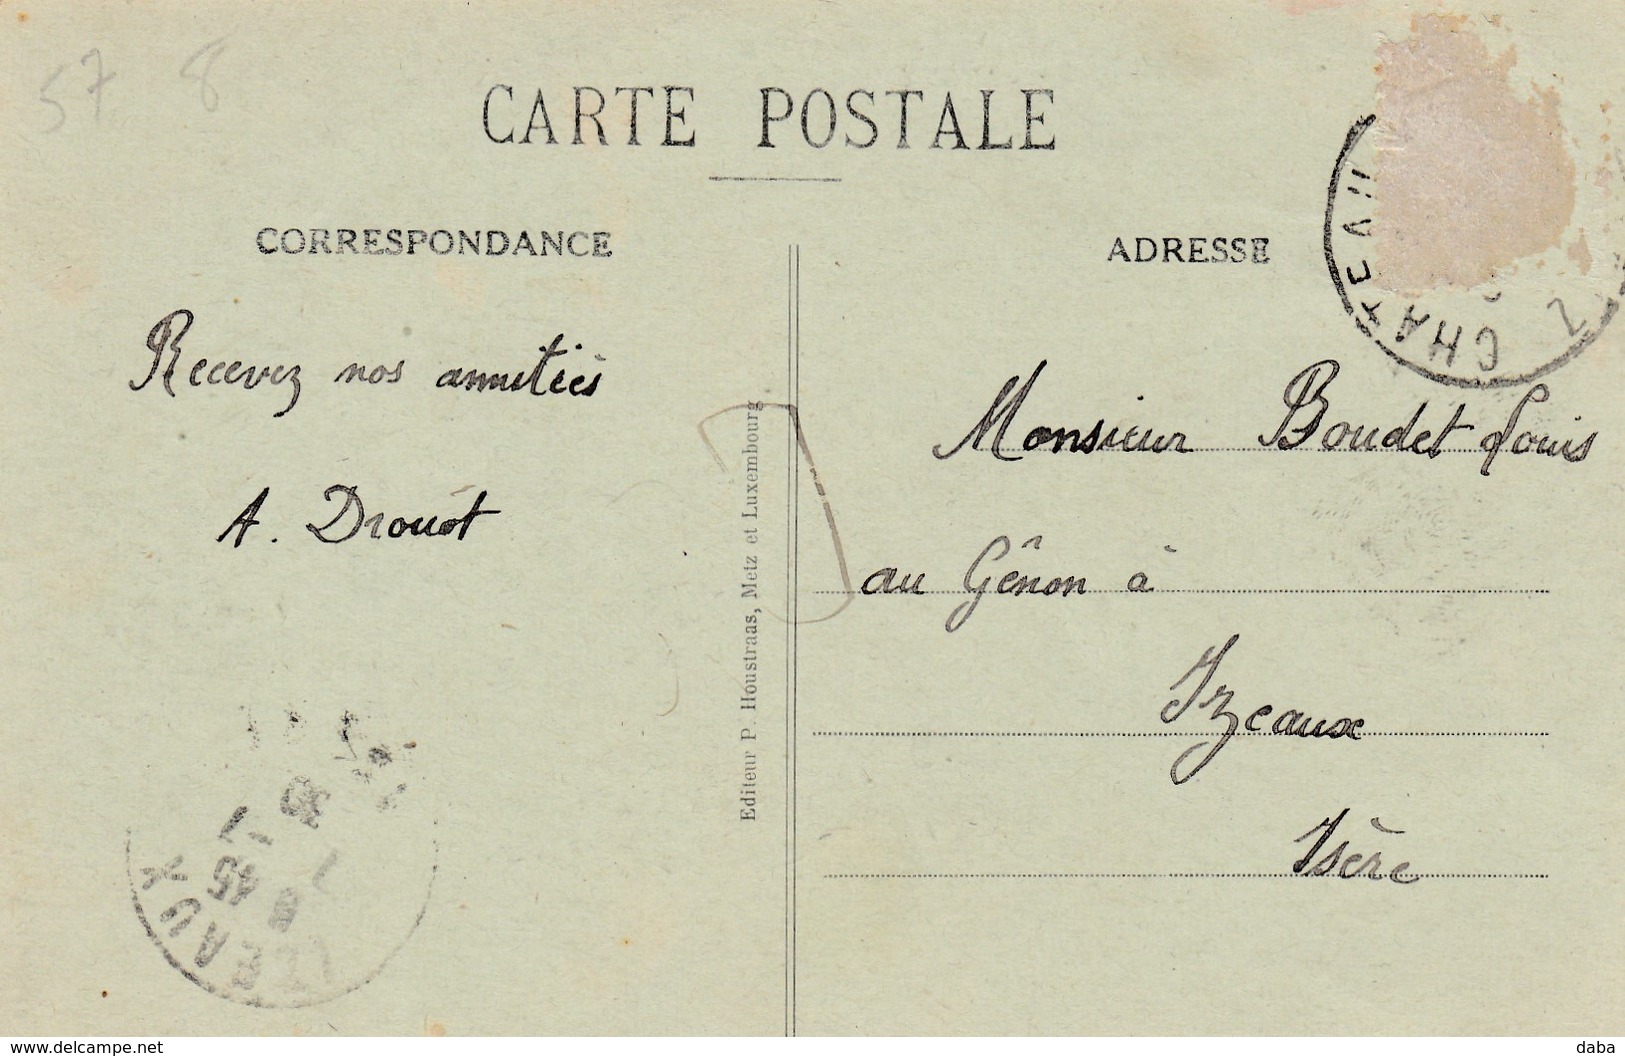 57 8
CARTE POSTALE
CORRESPONDANCE
Recevez nos amitiés
A. Drouot
Editeur P. Houstraas, Metz et Luxembourg
ADRESSE
Monsieur Boudet Louis
au Génon à
Izeaux
Isère
IZEAUX
7 45
www.delcampe.net
daba